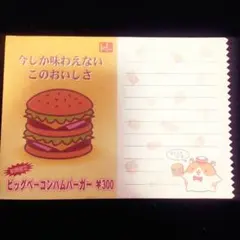 今しか味わえない
このおいしさ
ビッグベーコンハムバーガー ¥300